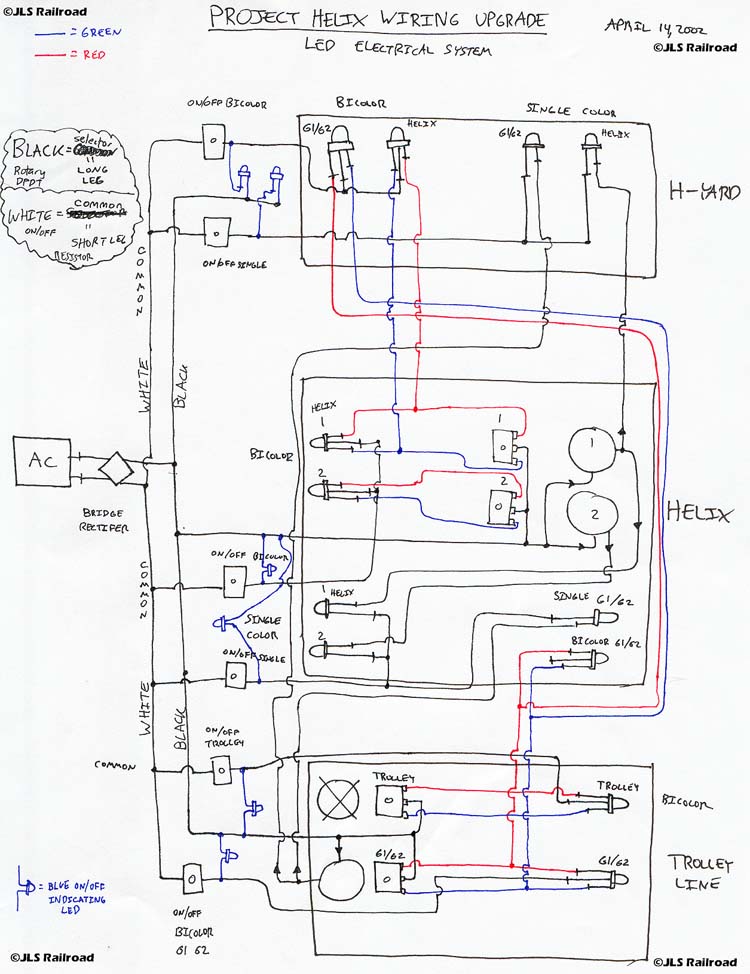 ©JLS Railroad
PROJECT HELIX WIRING UPGRADE
APRIL 14, 2002
= GREEN
LED ELECTRICAL SYSTEM
©JLS Railroad
= RED
ON/OFF BICOLOR
BICOLOR
SINGLE COLOR
G1/G2
HELIX
G1/G2
HELIX
selector
BLACK =
"
Rotary
LONG
DPDT
LEG
H-YARD
COMMON
WHITE =
"
ON/OFF
SHORT LEG
RESISTOR
ON/OFF SINGLE
COMMON
WHITE
BLACK
HELIX
1
1
1
BICOLOR
AC
2
2
2
HELIX
BRIDGE
RECTIFER
ON/OFF BICOLOR
COMMON
1
HELIX
SINGLE G1/G2
SINGLE
COLOR
2
BICOLOR G1/G2
ON/OFF SINGLE
WHITE
BLACK
ON/OFF
TROLLEY
COMMON
TROLLEY
TROLLEY
BICOLOR
G1/G2
G1/G2
TROLLEY
LINE
= BLUE ON/OFF
INDICATING
LED
ON/OFF
BICOLOR
G1 G2
©JLS Railroad
©JLS Railroad